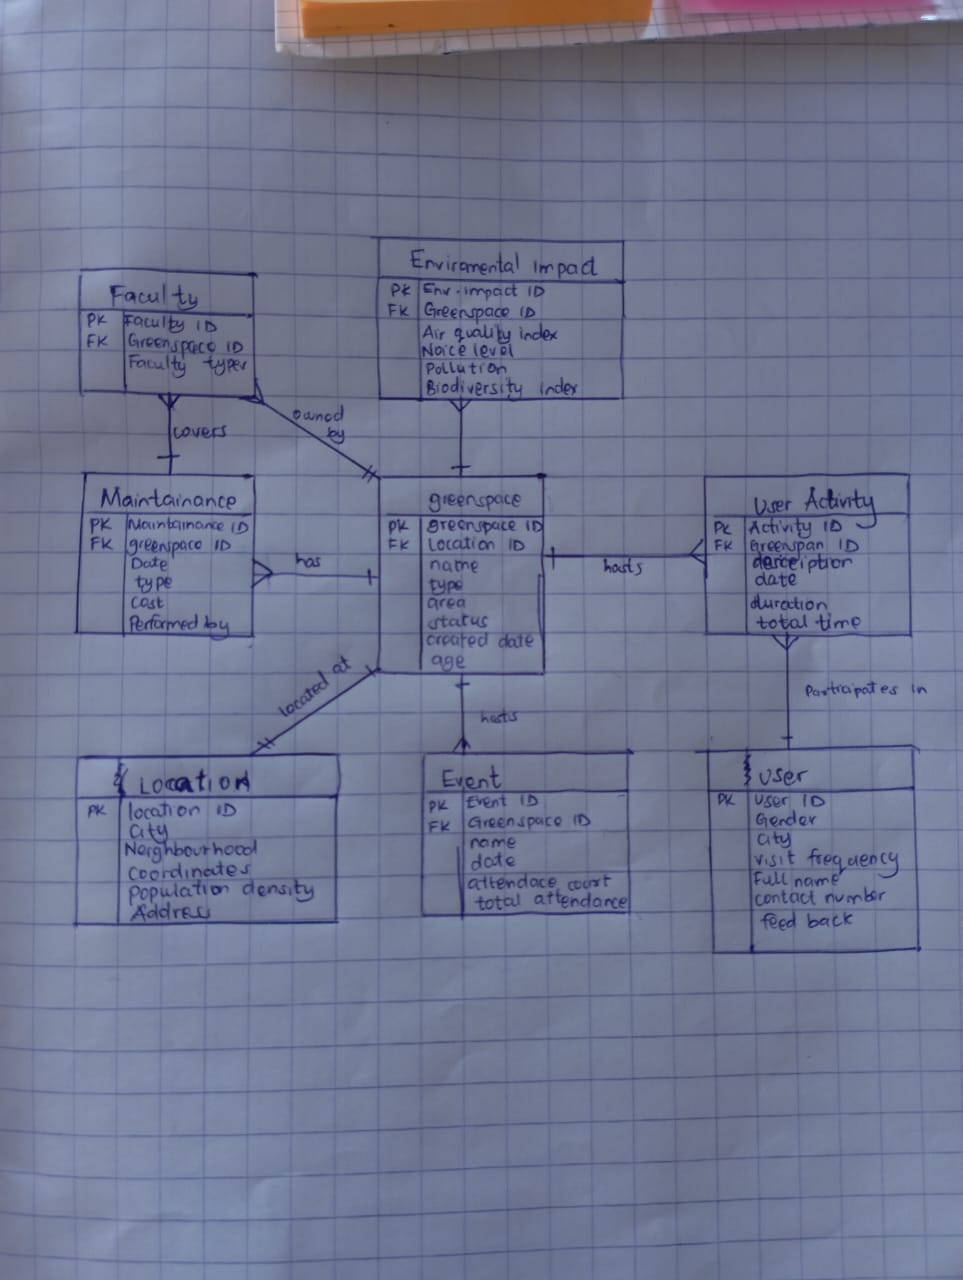 Enviromental impact
PK Env.impact ID
FK Greenspace ID
Air quality index
Noice level
Pollution
Biodiversity index
Faculty
PK Faculty ID
FK Greenspace ID
Faculty types
covers
owned
by
Maintainance
PK Maintainance ID
FK greenspace ID
Date
type
cost
Performed by
has
greenspace
PK greenspace ID
FK Location ID
name
type
area
status
created date
age
hosts
User Activity
PK Activity ID
FK Greenspan ID
description
date
duration
total time
Participates in
Located at
hosts
Location
PK location ID
City
Neighbourhood
coordinates
population density
Address
Event
PK Event ID
FK Greenspace ID
name
date
attendace court
total attendance
User
PK User ID
Gender
City
visit frequency
Full name
contact number
feed back